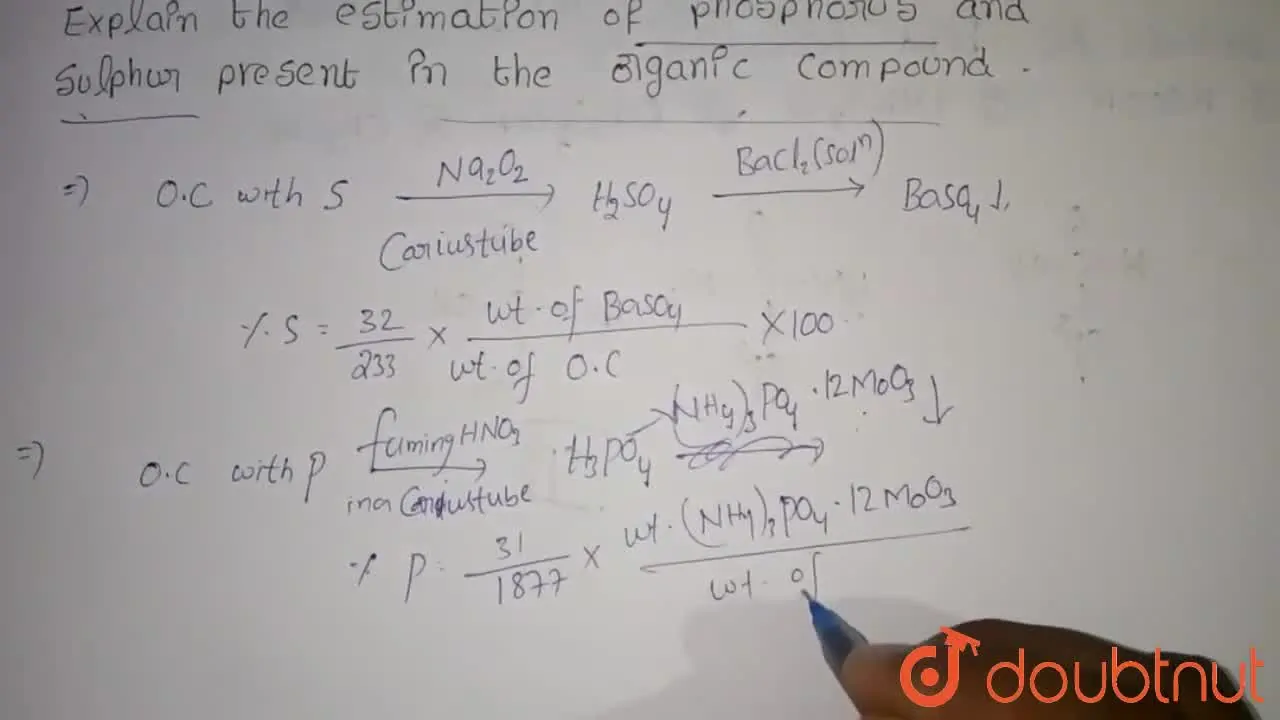 Explain the estimation of phosphorus and
Sulphur present in the organic compound.
=) O.C with S Na2O2 Cariustube H2SO4 BaCl2 (Soln) BaSO4 ↓.
% S = 32/233 × wt. of BaSO4 / wt. of O.C × 100
=) O.C with P fuming HNO3 in a Cariustube H3PO4 (NH4)3PO4 . 12MoO3 ↓
% P = 31/1877 × wt. (NH4)3PO4 . 12MoO3 / wt. of
doubtnut